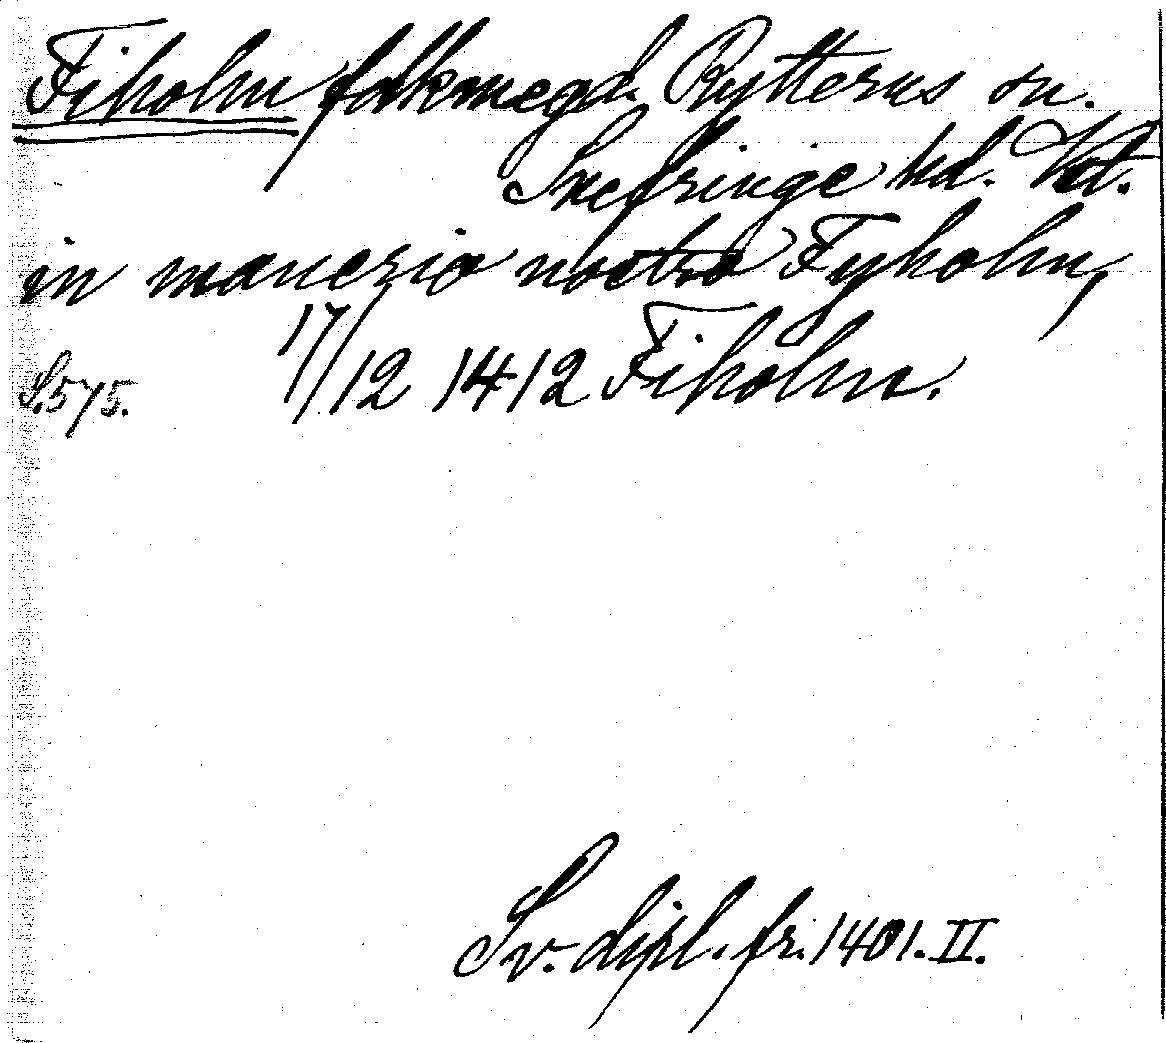 Fiholm folkmegd. Rytterns sn.
Snefringe hd. Vstl.
in manerio nostro Fyholm,
S. 575. 17/12 1412 Fiholm.
Sv. dipl. fr. 1401. II.